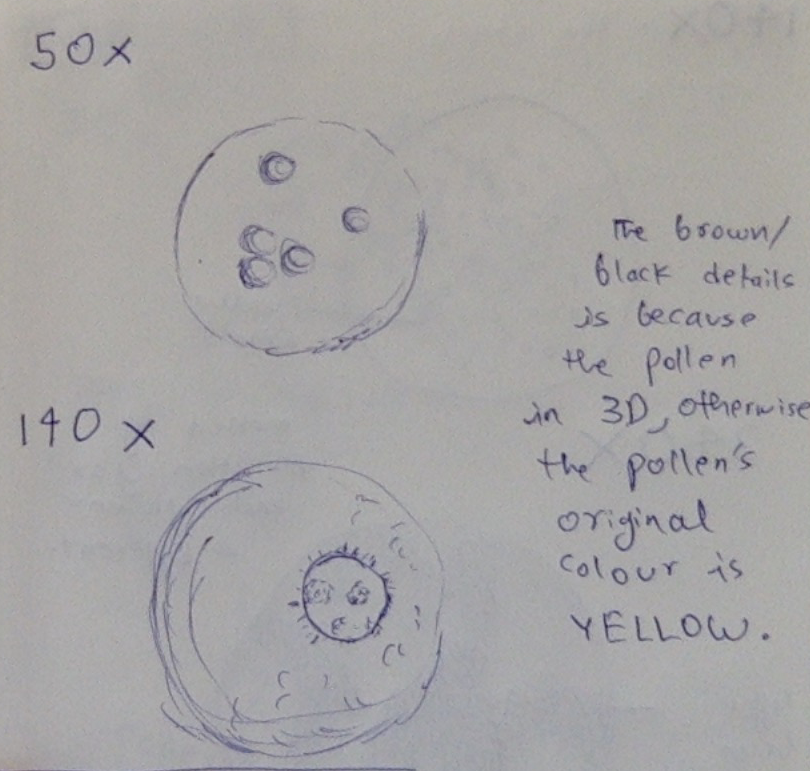 50x
The brown/
black details
is because
the pollen
in 3D, otherwise
the pollen's
original
colour is
YELLOW.
140 x